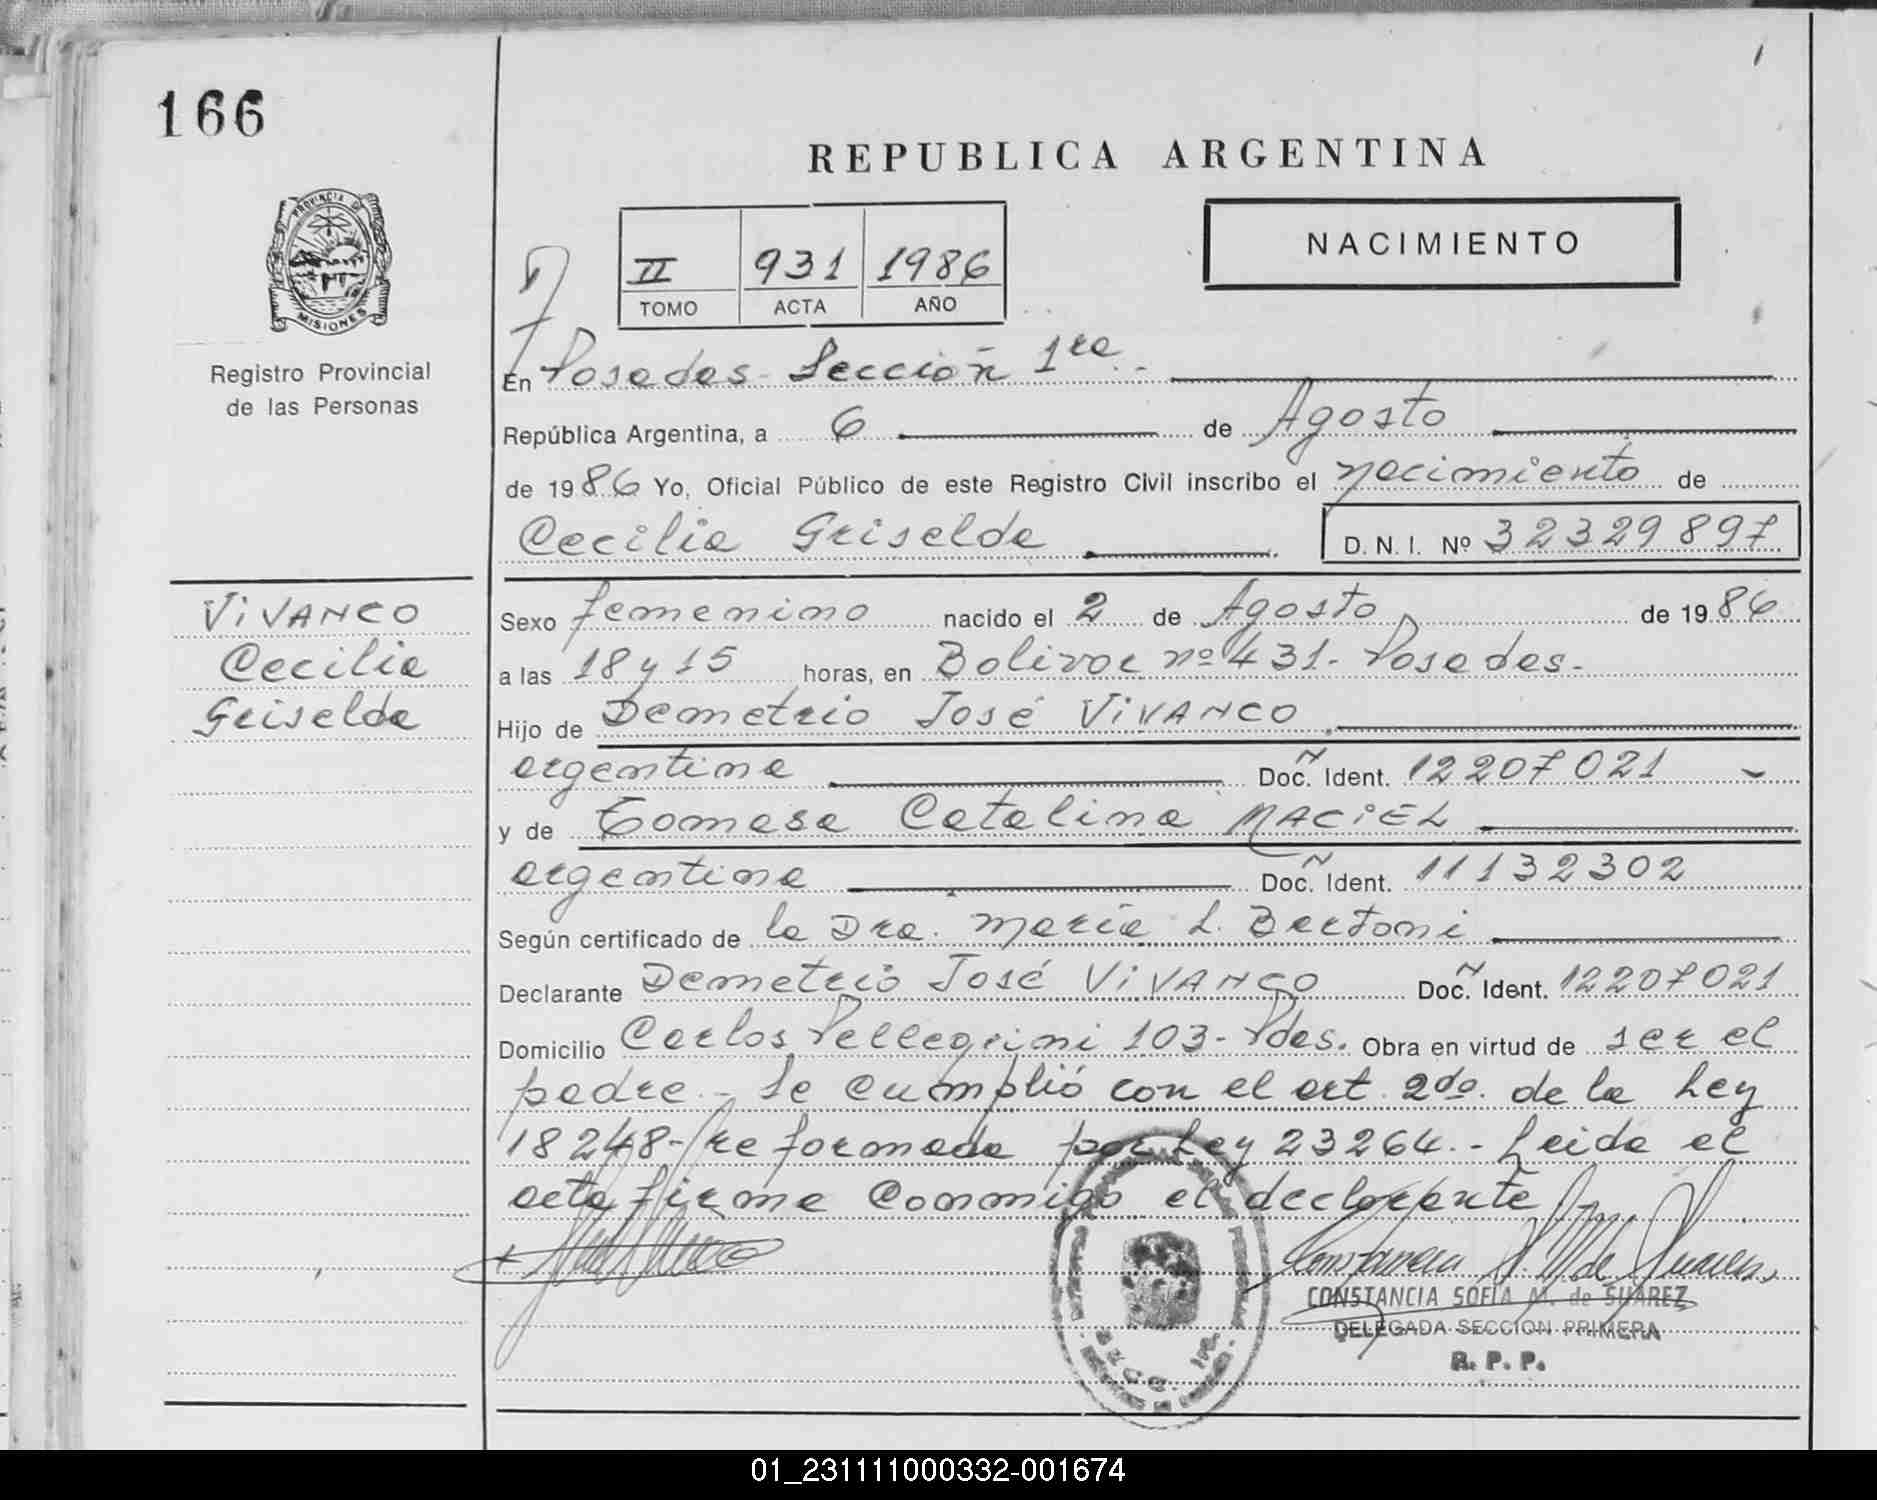 166
REPUBLICA ARGENTINA
PROVINCIA DE
MISIONES
Registro Provincial
de las Personas
II 931 1986
TOMO ACTA AÑO
NACIMIENTO
En Posadas Sección 1ra.-
República Argentina, a 6 de Agosto
de 1986 Yo, Oficial Público de este Registro Civil inscribo el nacimiento de
Cecilia Griselda D. N. I. Nº 32329897
VIVANCO
Cecilia
Griselda
Sexo femenino nacido el 2 de Agosto de 1986
a las 18 y 15 horas, en Bolivar nº 431.- Posadas.-
Hijo de Demetrio José VIVANCO
argentina Doc. Ident. 12207021
y de Tomasa Catalina MACIEL
argentina Doc. Ident. 11132302
Según certificado de la Dra. María L. Bertoni
Declarante Demetrio José VIVANCO Doc. Ident. 12207021
Domicilio Carlos Pellegrini 103- Pdas. Obra en virtud de ser el
padre.- Se cumplió con el art. 2do. de la Ley
18248- reformada por Ley 23264.- Leida el
acta firma conmigo el declarante
CONSTANCIA SOFIA M. de SUAREZ
DELEGADA SECCION PRIMERA
R. P. P.
01_231111000332-001674